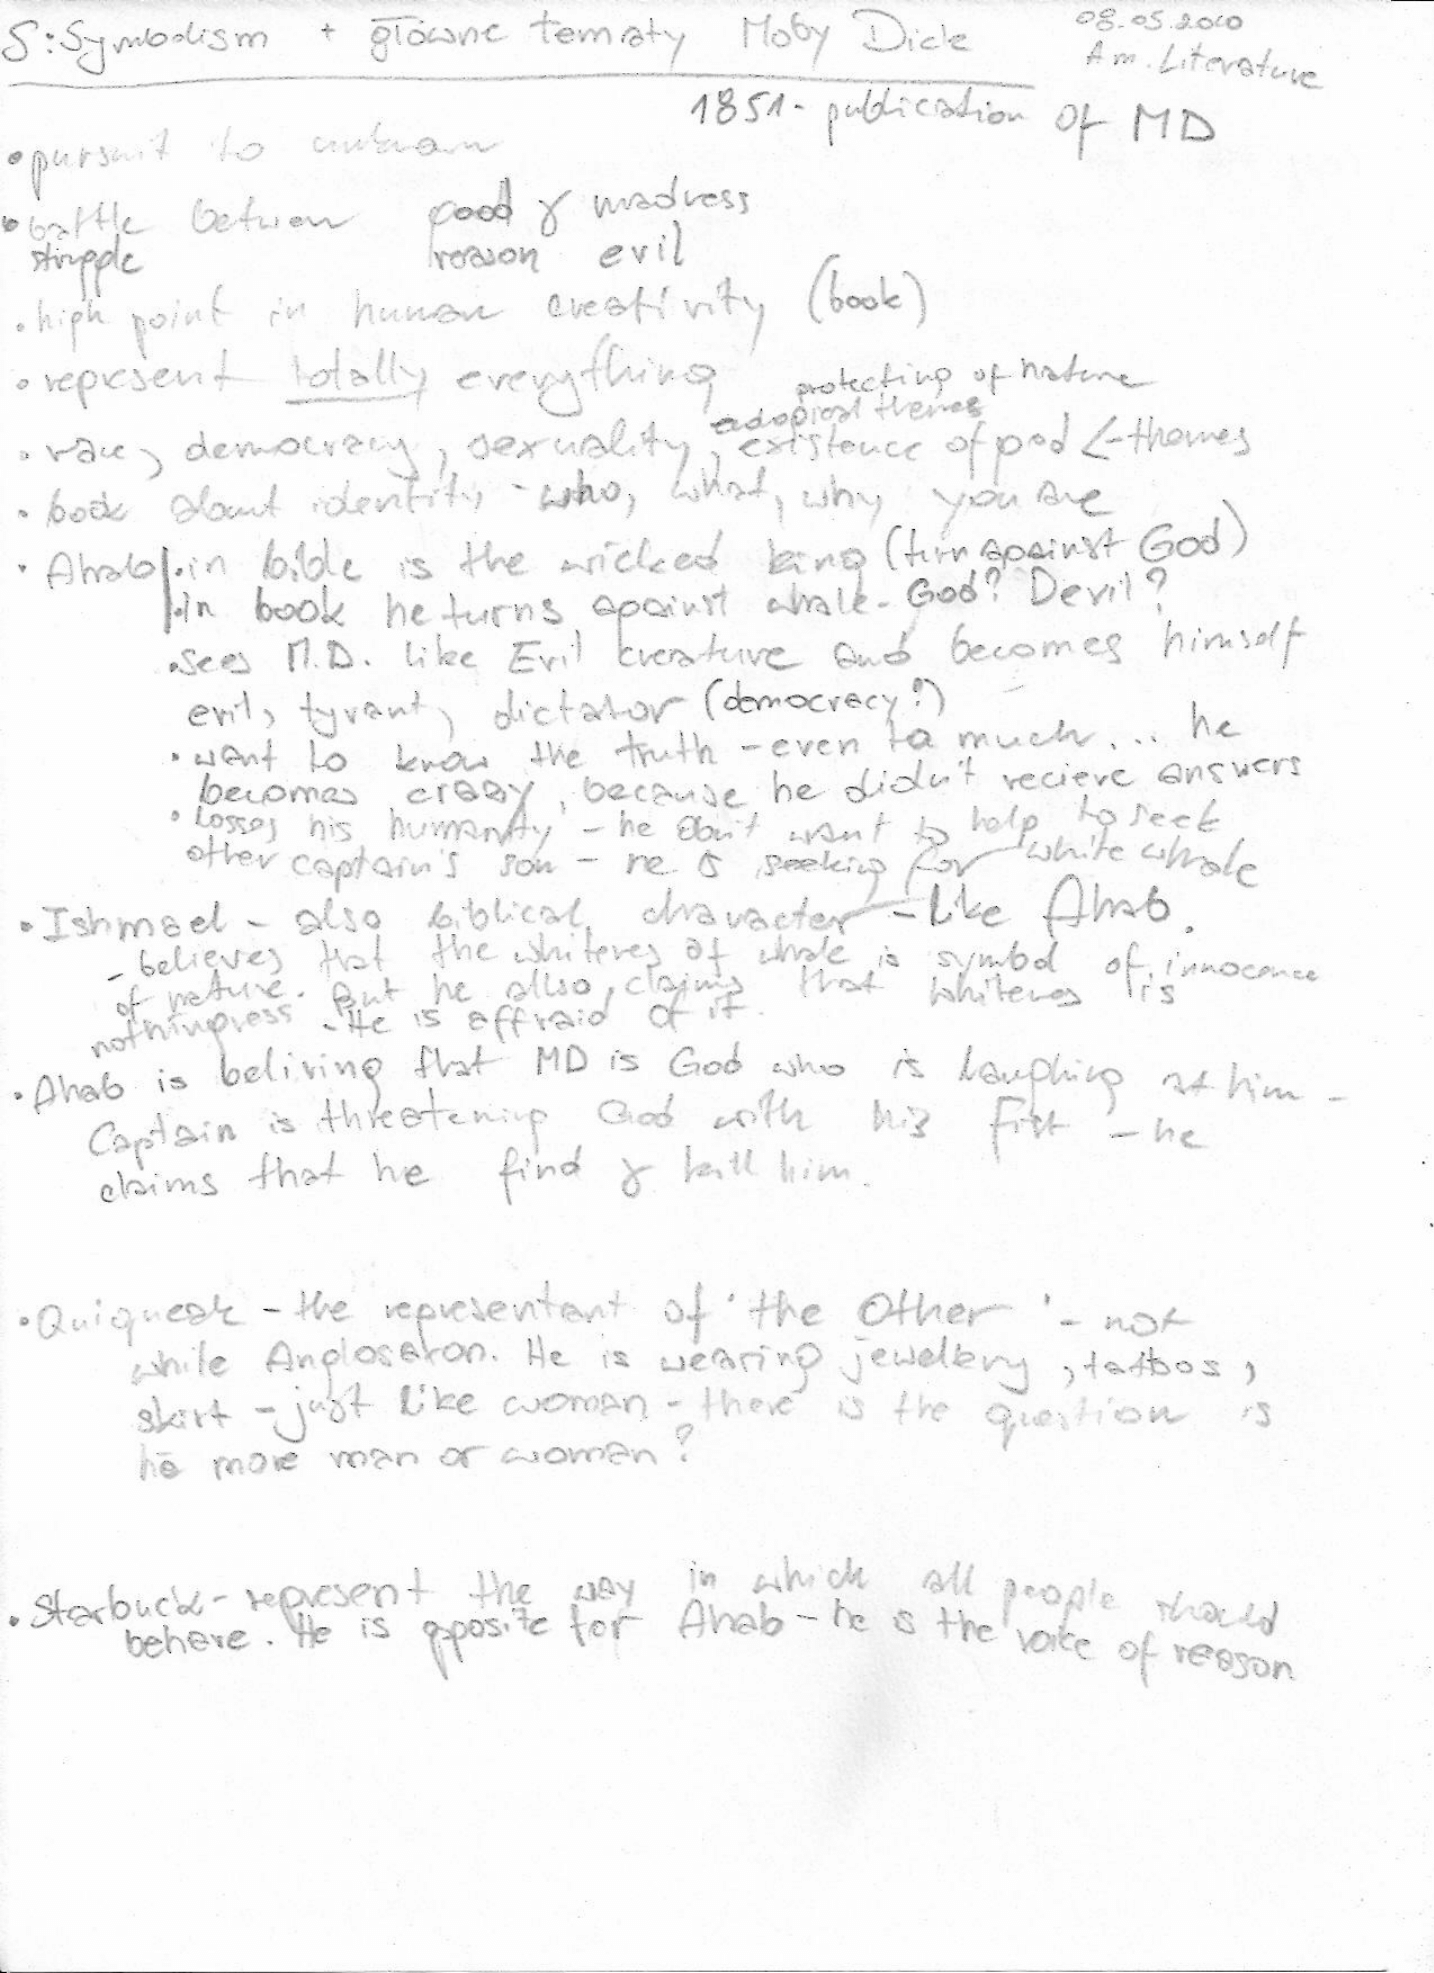 S: Symbolism + główne tematy Moby Dick
08.05.2010
Am. Literature
1851 - publication of MD
• pursuit to unknown
• battle between good & madness
struggle reason evil
• high point in human creativity (book)
• represent totally everything
protecting of nature
themes
• race, democracy, sexuality, existence of god <- themes
• book about identity - who, what, why you are
• Ahab • in bible is the wicked king (turn against God)
• in book he turns against whale - God? Devil?
• sees M.D. like Evil creature and becomes himself
evil, tyrant, dictator (democracy?)
• want to know the truth - even to much... he
becomes crazy, because he didn't recieve answers
• losses his humanity - he don't want to help to seek
other captain's son - he is seeking for white whale
• Ishmael - also biblical character - like Ahab.
- believes that the whitenes of whale is symbol of innocence
of nature. But he allso claims that whitenes is
nothingness - He is affraid of it.
• Ahab is beliving that MD is God who is laughing at him -
Captain is threatening God with his fist - he
claims that he find & kill him.
• Quiqueak - the representant of 'the Other' - not
while Anglosaxon. He is wearing jewellery, tattoos,
skirt - just like woman - there is the question is
he more man or woman?
• Starbuck - represent the way in which all people should
behave. He is opposite for Ahab - he is the voice of reason